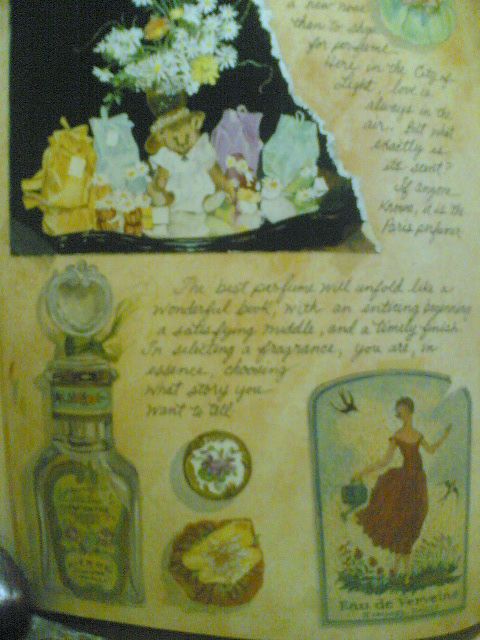 a new nose
than to shop
for perfume
Here in the City of
Light, love is
always in the
air. But what
exactly is
its scent?
If anyone
knows, it is the
Paris perfumer
The best perfume will unfold like a
wonderful book, with an enticing beginning
a satisfying middle, and a timely finish.
In selecting a fragrance, you are, in
essence, choosing
what story you
want to tell.
Eau de Verveine